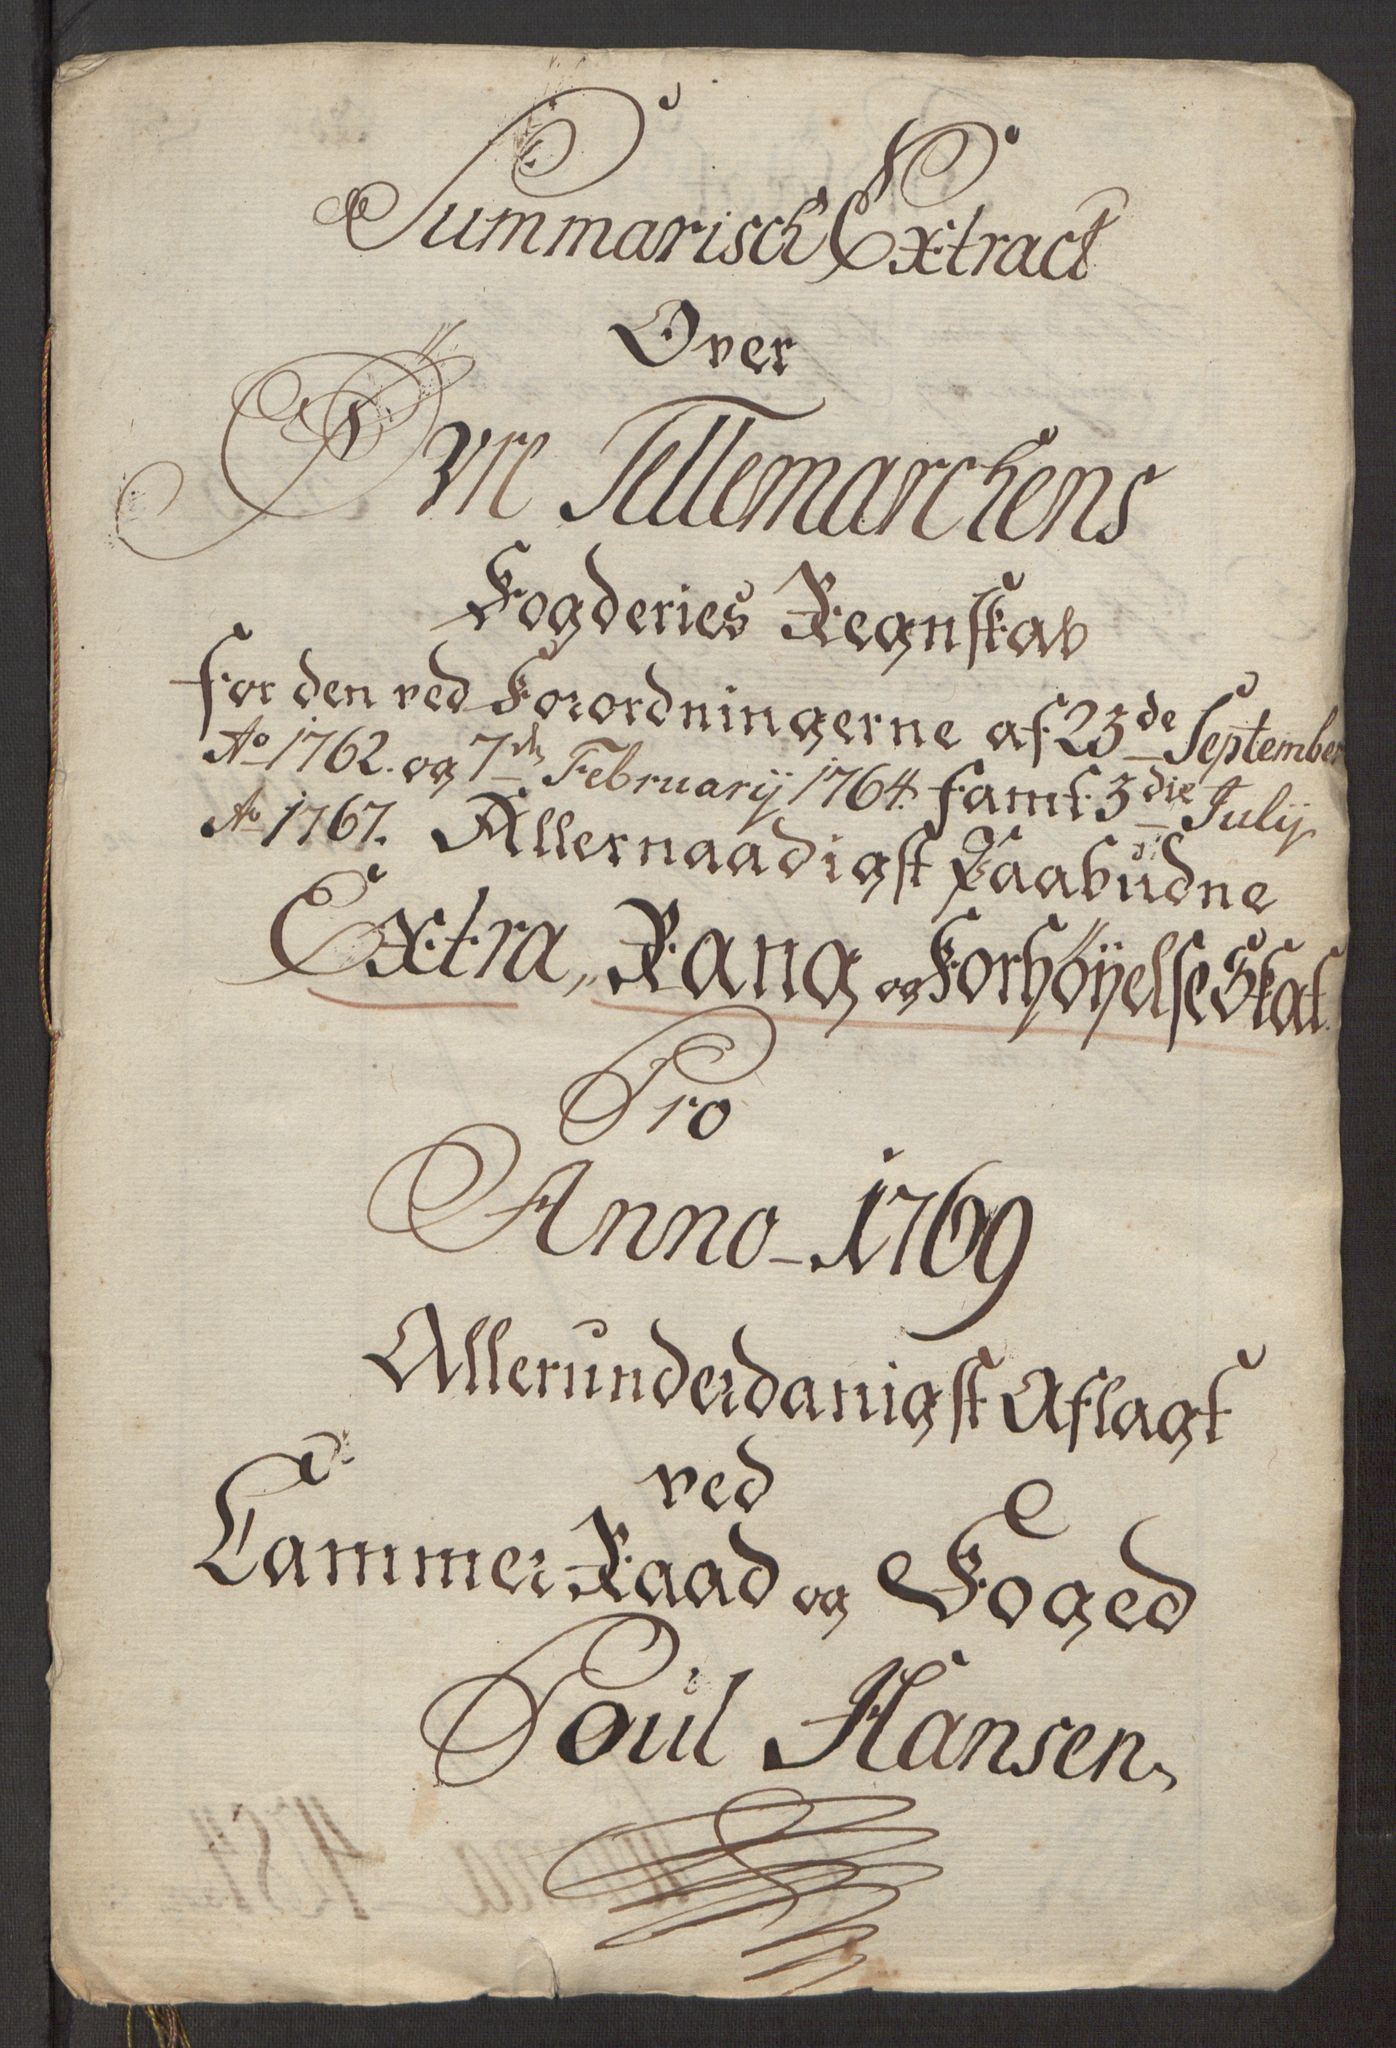 Summarisch Extract
Over
Øvre Tellemarchens
Fogderies Regnskab
for den ved Forordningerne af 23de September
Ao 1762. og 7de Februarij 1764. samt 3die Julij
Ao 1767. Allernaadigst Paabudne
Extra, Rang og Forhøÿelse Skat.
Pro
Anno 1769
Allerunderdanigst Aflagt
ved
Cammer Raad og Foged
Poul Hansen